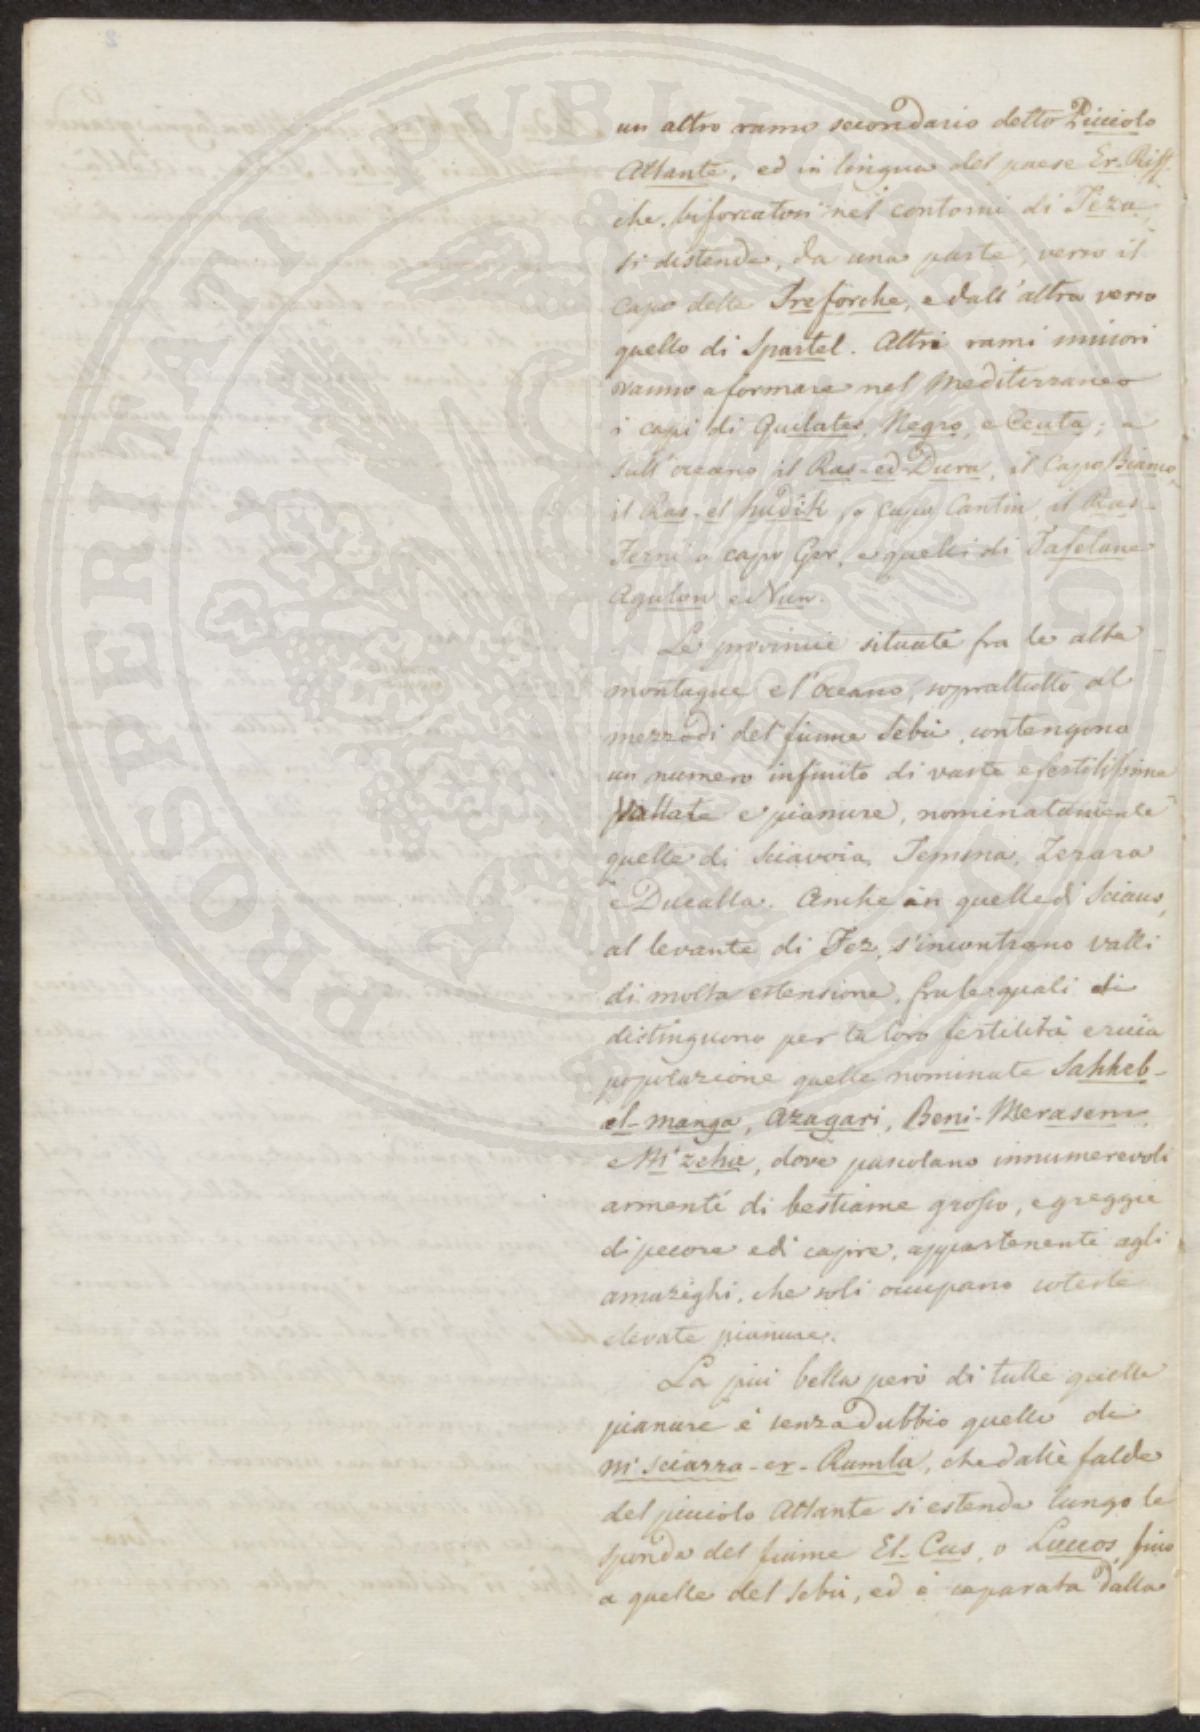 PROSPERITATI PUBLICAE AUGENDAE
un altro ramo secondario detto Picciolo
Atlante, ed in lingua del paese Er-Riff
che, biforcatosi nei contorni di Teza,
si distende, da una parte, verso il
capo delle Treforche, e dall'altra verso
quello di Spartel. Altri rami minori
vanno a formare nel Mediterraneo
i capi di Quilates, Negro, e Ceuta; e
sull'oceano il Ras-ed-Dura, il Capo Bianco,
il Ras-el hudik, o capo Cantin, il Ras-
Ferni o capo Ger, e quelli di Tafelane
Agulon e Nun.
Le provincie situate fra le alte
montagne e l'oceano, soprattutto al
mezzodi del fiume Sebù, contengono
un numero infinito di vaste e fertilissime
vallate e pianure, nominatamente
quelle di Sciavoia, Temsna, Zerara
e Ducalla. Anche in quelle di Sciaus,
al levante di Fez, s'incontrano valli
di molta estensione, fra le quali si
distinguono per la loro fertilità e ricca
popolazione quelle nominate Sahheb-
el-marga, Azagari, Beni-Merasen,
e M'zehie, dove pascolano innumerevoli
armenti di bestiame grosso, e greggie
di pecore e di capre, appartenenti agli
amazighi, che soli occupano coteste
elevate pianure.
La più bella però di tutte quelle
pianure è senza dubbio quella di
M'sciarra-er-Ramla, che dalle falde
del picciolo Atlante si estende lungo le
sponde del fiume El-Cus, o Luccos, fino
a quelle del Sebù, ed è separata dalla